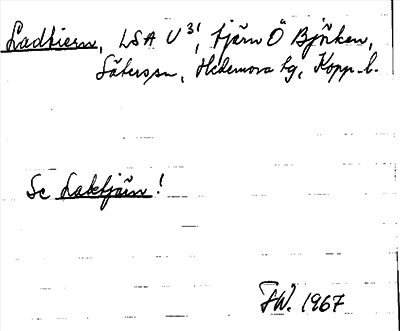 Ladtiern, LSA U 31, tjärn Ö Bjürken,
Säters sn, Hedemora tg, Kopp. l.
Se Laktjärn!
FW. 1967